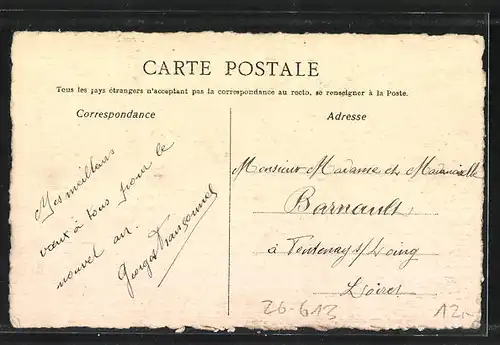 CARTE POSTALE
Tous les pays étrangers n'acceptant pas la correspondance au recto, se renseigner à la Poste.
Correspondance
Mes meilleurs
vœux à tous pour le
nouvel an.
Georges
Adresse
Monsieur Madame et Mademoiselle
Barnault
à Fontenay s/Loing
Loiret
26-613
12,-